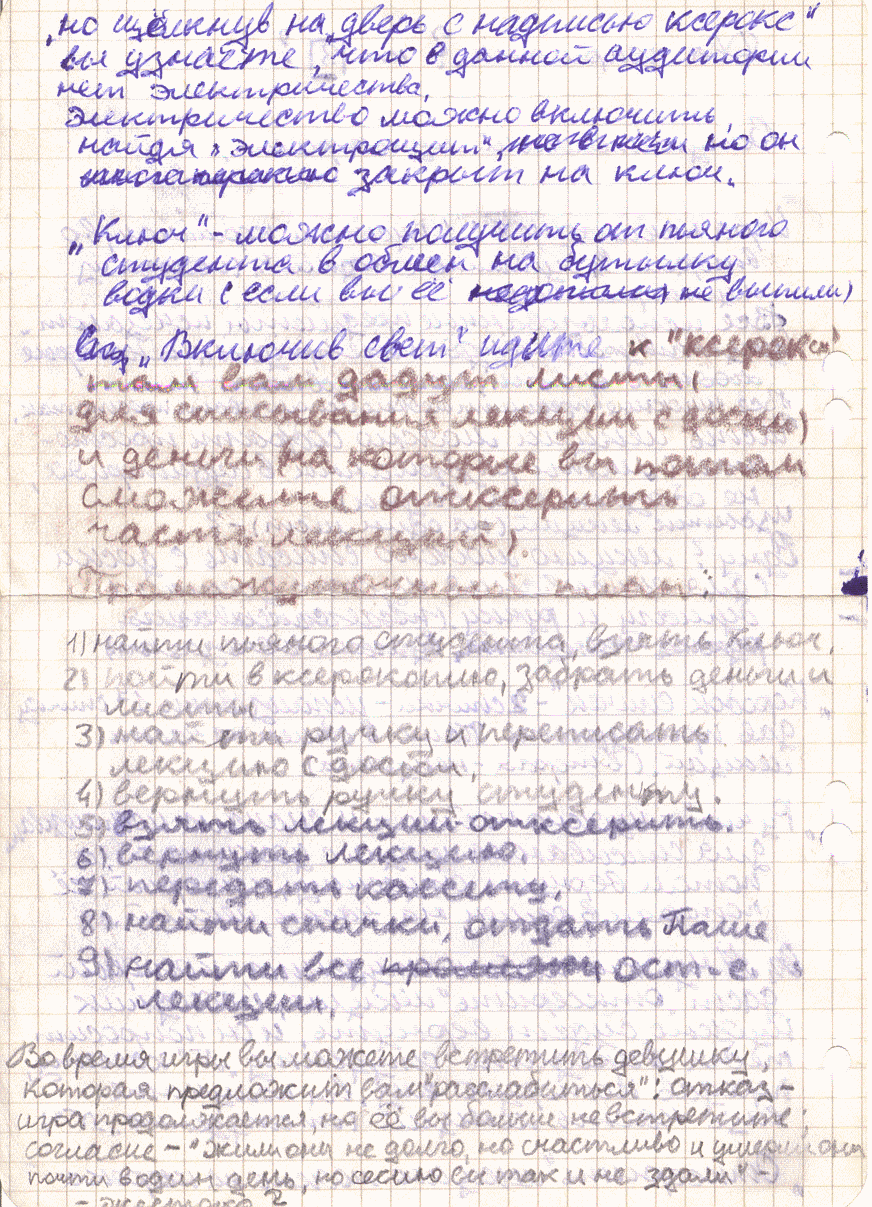 „но щёлкнув на „дверь с надписью ксерокс"
вы узнаёте, что в данной аудитории
нет электричества.
Электричество можно включить,
найдя „электрощит", но он
закрыт на ключ.
„Ключ" - можно получить от пьяного
студента в обмен на бутылку
водки (если вы её не выпили)
„Включив свет" идите к "ксерокси"
там вам дадут листы (
для списывания лекции с доски)
и деньги (на которые вы потом
сможете отксерить
часть лекций).
Промежуточный план:
1) найти пьяного студента, взять ключ.
2) пойти в ксерокопию, забрать деньги и
листы
3) найти ручку и переписать
лекцию с доски,
4) вернуть ручку студенту.
5) взять лекций-отксерить.
6) вернуть лекцию.
7) передать кассету.
8) найти спички, отдать Паше
9) найти все ост-е
лекции.
Во время игры вы можете встретить девушку,
которая предложит вам "расслабиться": отказ -
игра продолжается, но её вы больше не встретите;
согласие - "жили они не долго, но счастливо и умерли они
почти в один день, но сесию вы так и не здали" -